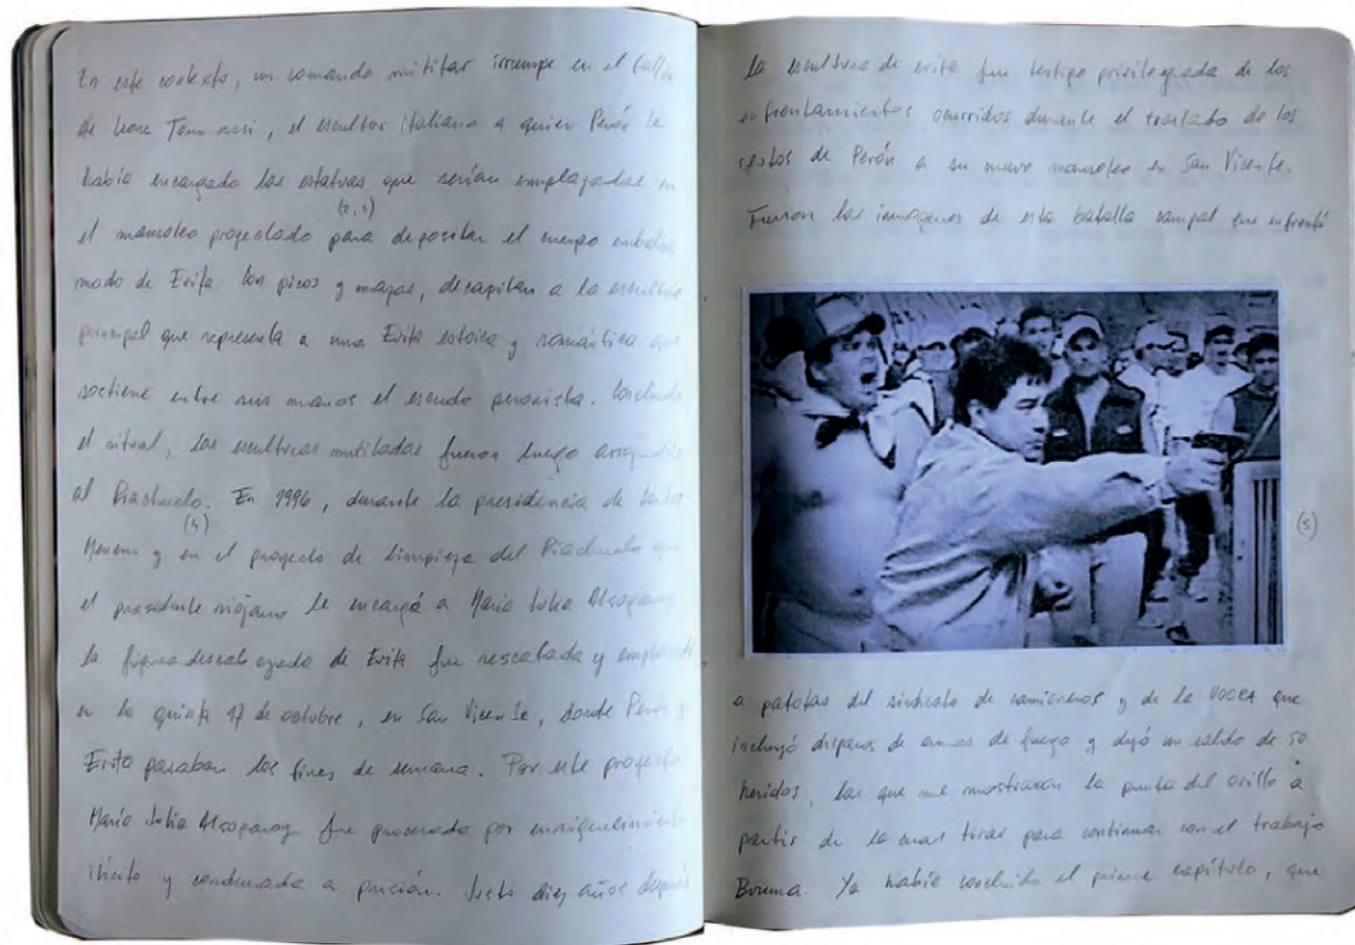 En este contexto, un comando militar irrumpe en el taller
de Leone Tommassi, el escultor italiano a quien Perón le
había encargado las estatuas que serían emplazadas en
(2,3)
el mausoleo proyectado para depositar el cuerpo embalsa
mado de Evita. Con picos y mazas, decapitan a la escultura
principal que representa a una Evita estoica y romántica que
sostiene entre sus manos el escudo peronista. Concluido
el ritual, las esculturas mutiladas fueron luego arrojadas
al Riachuelo. En 1996, durante la presidencia de Carlos
(4)
Menem y en el proyecto de limpieza del Riachuelo que
el presidente riojano le encargó a María Julia Alsogaray
la figura descabezada de Evita fue rescatada y emplazada
en la quinta 17 de octubre, en San Vicente, donde Perón y
Evita pasaban los fines de semana. Por este proyecto
María Julia Alsogaray fue procesada por enriquecimiento
ilícito y condenada a prisión. Justo diez años después
la escultura de evita fue testigo privilegiada de los
enfrentamientos ocurridos durante el traslado de los
restos de Perón a su nuevo mausoleo en San Vicente.
Fueron las imágenes de esta batalla campal que enfrentó
(5)
a patotas del sindicato de camioneros y de la UOCRA que
incluyó disparos de armas de fuego y dejó un saldo de 50
heridos, las que me mostraron la punta del ovillo a
partir de la cual tirar para continuar con el trabajo
Bruma. Ya había concluido el primer capítulo, que